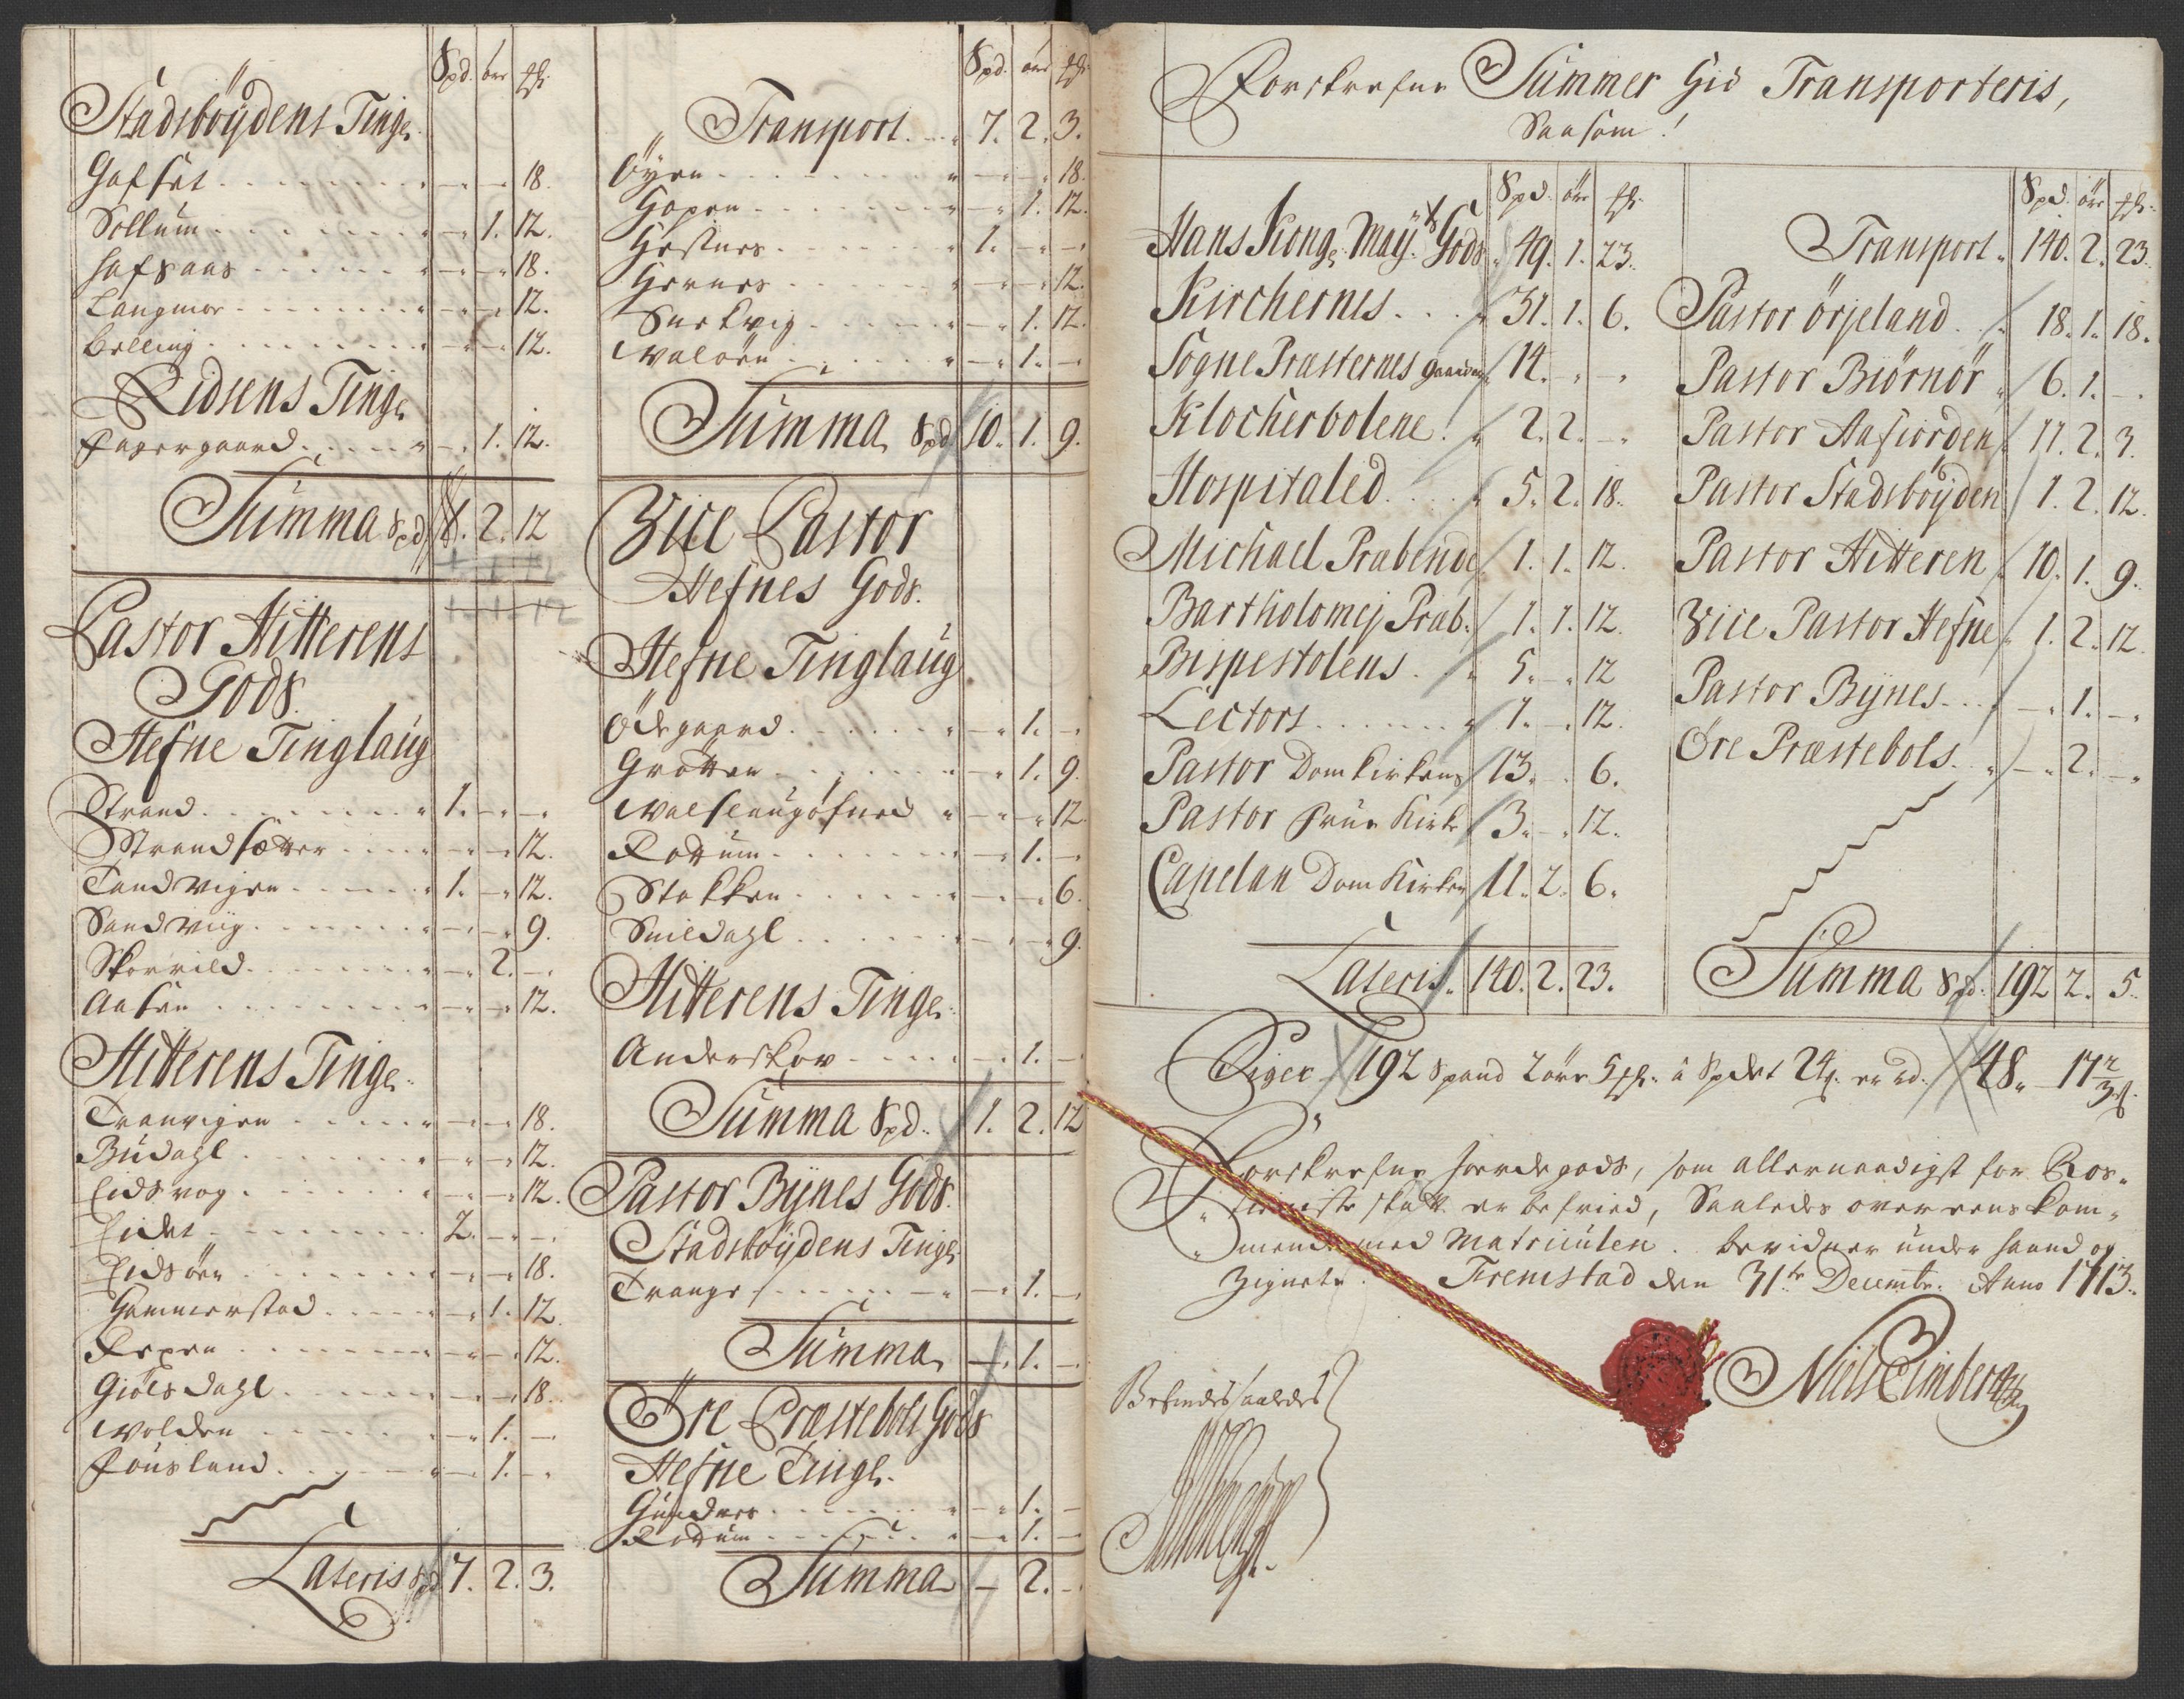 Spd. ōre ß.
Stadsböÿdens Tingl.
Hafset - - 18.
Sollum - 1. 12.
Hafsaas - - 18.
Langmoe - - 12.
Belling - - 12.
Ridsens Tingl.
Fagergaard - 1. 12.
Summa Spd 1. 2. 12
Pastor Hitterens
Gods.
Hefne Tinglaug
Strand 1. - -
Strandsætter - - 12.
Tandvigen 1. - 12.
Sandviig - - 9.
Skorrild - 2. -
Aasen - - 12.
Hitterens Tingl.
Tranvigen - - 18.
Budahl - - 12.
Eidsvog - - 12.
Eidet 2. - -
Eidsören - - 18.
Hammerstad - 1. 12.
Repen - - 12.
Giölsdahl - - 18.
Wolden - 1. -
Fousland - 1. -
Lateris Spd 7. 2. 3.
Spd. öre ß.
Transport 7. 2. 3.
Öyen - - 18.
Hopen - 1. 12.
Hestnes 1. - -
Hernes - - 12.
Snekvig - 1. 12.
Walöen - 1. -
Summa Spd 10. 1. 9.
Vice Pastor
Hefnes Gods.
Hefne Tinglaug
Ödegaard - 1. -
Grötten - 1. 9.
Walslaugöfned - - 12
Rottum - 1. -
Stokken - - 6.
Snildahl - - 9.
Hitterens Tingl.
Anderskov - 1. -
Summa Spd. 1. 2. 12
Pastor Bÿnes Gods.
Stadsböÿdens Tingl.
Trange - 1. -
Summa - 1. -
Öre Præstebols Gods
Hefne Tingl.
Gundnes - 1. -
Rottum - 1. -
Summa - 2. -
Forskrefne Summer Hid Transporteris,
Saasom!
Spd. öre ß.
Hans Kongl. Maÿ.ts Gods 49. 1. 23.
Kirchernes 31. 1. 6.
Sogne Præsternes gaarder 14. - -
Klocherbolene! 2. 2. -
Hospitaled 5. 2. 18.
Michael Præbende 1. 1. 12.
Bartholomej Præb. 1. 1. 12.
Bispestolens 5. - 12
Lectors 1. - 12.
Pastor Domkirkens 13. - 6.
Pastor Frue Kirke 3. - 12.
Capelan Dom Kirken 11. 2. 6.
Lateris 140. 2. 23.
Spd. öre ß.
Transport 140. 2. 23.
Pastor Örjeland 18. 1. 18.
Pastor Biörnör 6. 1. -
Pastor Aafiorden 11. 2. 3.
Pastor Stadsböÿden 1. 2. 12.
Pastor Hitteren 10. 1. 9.
Vice Pastor Hefne 1. 2. 12.
Pastor Bÿnes - 1. -
Øre Præstebols - 2. -
Summa Spd. 192 2. 5.
Siger 192 Spand 2 öre 5 ß. â Spdet 24 ß. er rd. 48. - 17 2/3 ß.
Forskrefne jordegods, som allernaadigst for Ros-
tienneste skatt er befried, Saaledes overeenskom-
mende med Matriculen. Bevidner under haand og
Zignete. Tremstad den 31te Decembr: Anno 1713.
Befindes saaledes
Niels Eimberg